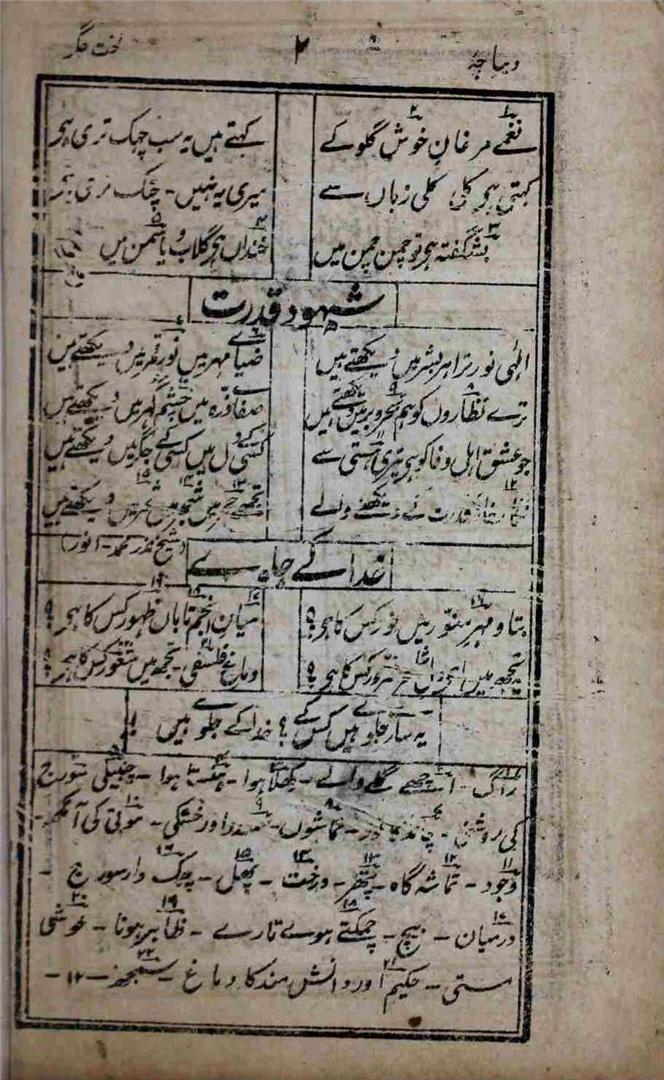 دیباچہ ۲ لخت جگر
نغمے مرغانِ خوش گلو کے کہتے ہیں یہ سب چہک تری ہی
کہتی ہی کلی کلی زباں سے میری یہ نہیں - چٹک تری ہی
بشگفتہ ہی تو چمن چمن میں خنداں ہی گلاب و یاسمن میں
شہودِ قدرت
الٰہی نور ترا ہر بشر میں دیکھتے ہیں ضیائے مہر میں نورِ قمر میں دیکھتے ہیں
ترے نظاروں کو ہم بحر و بر میں دیکھتے ہیں صفائے ذرہ میں چشمِ گہر میں دیکھتے ہیں
جو عشق اہلِ وفا کو ہی تیری ہستی سے کسی کے دل میں کسی کے جگر میں دیکھتے ہیں
قدرت کے دیکھنے والے تجھے حجر میں شجر میں ثمر میں دیکھتے ہیں
(شیخ نذر محمد - انور)
خدا کے جلوے
بتاؤ مہرِ منور میں نور کس کا ہی؟ میانِ انجمِ تاباں ظہور کس کا ہی؟
تجھ میں سرور کس کا ہی؟ دماغِ فلسفی - تجھ میں شعور کس کا ہی؟
یہ سارے جلوے ہیں کس کے؟ خدا کے جلوے ہیں!
راگ - اچھے گلے والے - کھلا ہوا - ہنستا ہوا - چمکیلی سورج
کی روشنی - چاند کا نور - تماشوں - سمندر اور خشکی - موتی کی آنکھ -
وجود - تماشہ گاہ - پتھر - درخت - پھل - چمک دار سورج -
درمیان - بیچ - چمکتے ہوئے تارے - ظاہر ہونا - خوشی
مستی - حکیم اور دانش مند کا دماغ - سمجھ - ۱۲ -